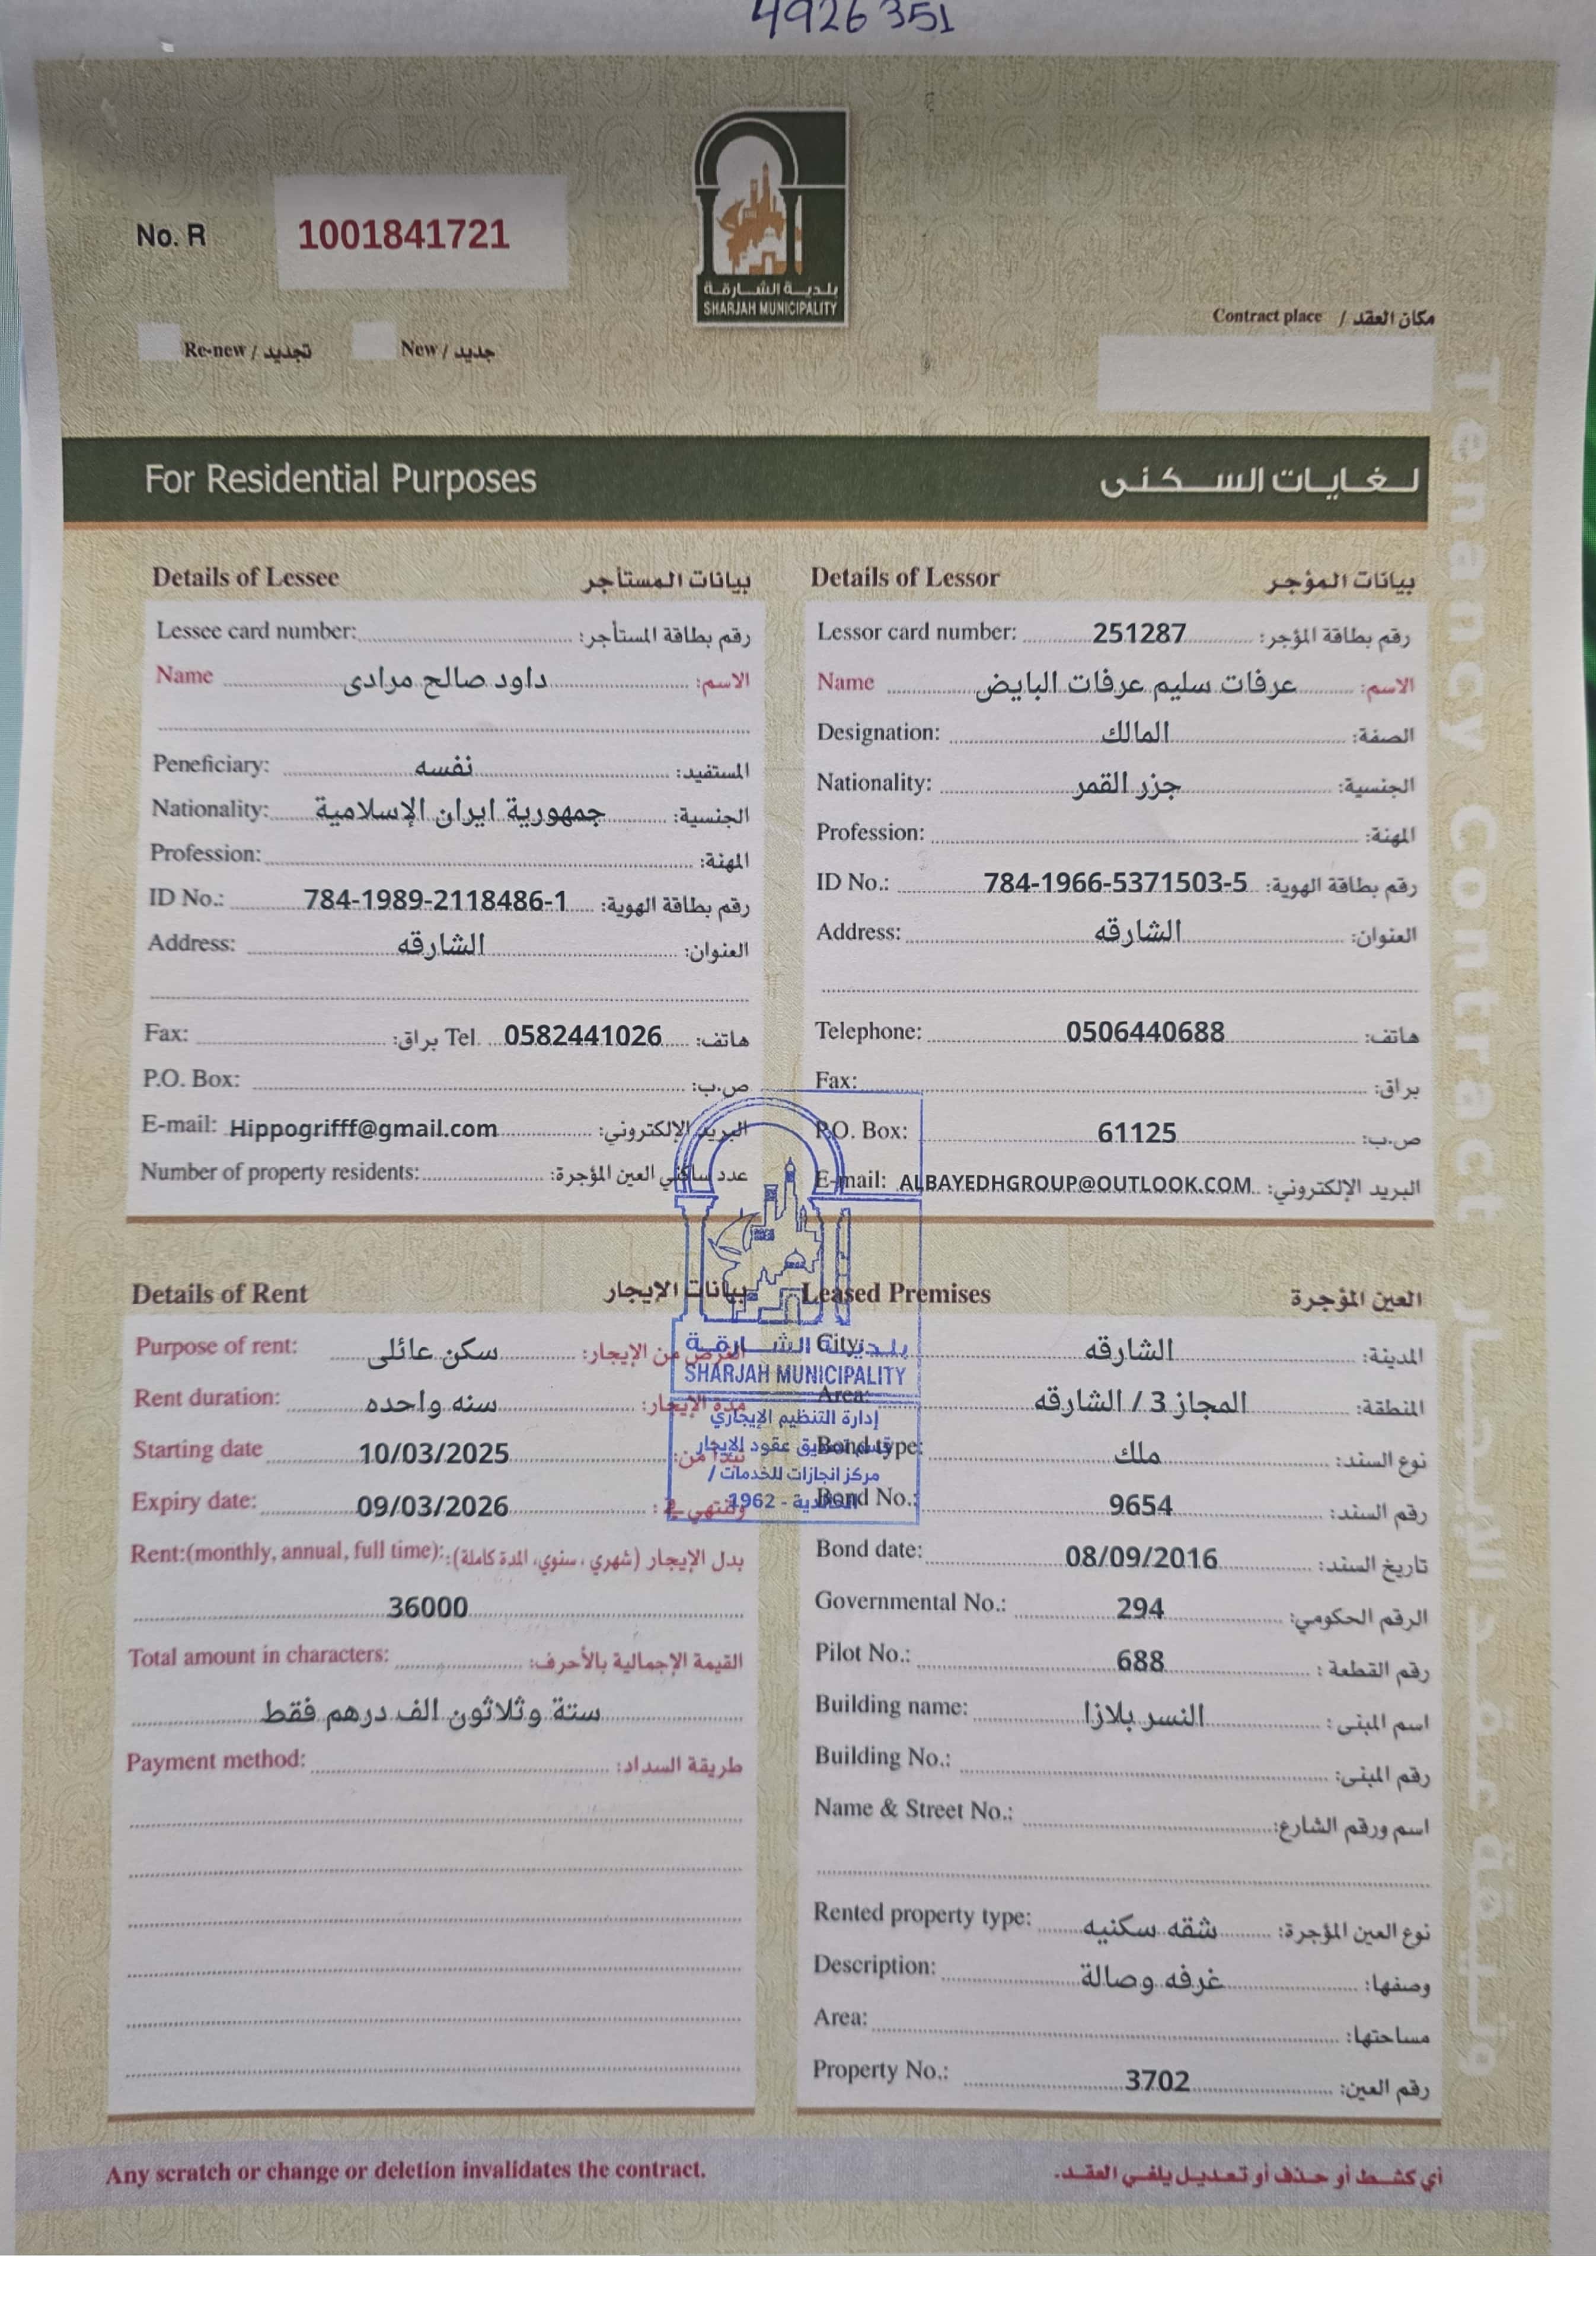 4926351
No. R 1001841721
بلدية الشارقة
SHARJAH MUNICIPALITY
Contract place / مكان العقد
Re-new / تجديد New / جديد
For Residential Purposes لغايات السكنى
Tenancy Contract
Details of Lessee بيانات المستأجر
Lessee card number: رقم بطاقة المستأجر:
Name داود صالح مرادى الاسم:
Peneficiary: نفسه المستفيد:
Nationality: جمهورية ايران الإسلامية الجنسية:
Profession: المهنة:
ID No.: 784-1989-2118486-1 رقم بطاقة الهوية:
Address: الشارقه العنوان:
Fax: براق: Tel. 0582441026 هاتف:
P.O. Box: ص.ب:
E-mail: Hippogrifff@gmail.com البريد الإلكتروني:
Number of property residents: عدد ساكني العين المؤجرة:
Details of Lessor بيانات المؤجر
Lessor card number: 251287 رقم بطاقة المؤجر:
Name عرفات سليم عرفات البايض الاسم:
Designation: المالك الصفة:
Nationality: جزر القمر الجنسية:
Profession: المهنة:
ID No.: 784-1966-5371503-5 رقم بطاقة الهوية:
Address: الشارقه العنوان:
Telephone: 0506440688 هاتف:
Fax: براق:
P.O. Box: 61125 ص.ب:
E-mail: ALBAYEDHGROUP@OUTLOOK.COM البريد الإلكتروني:
Details of Rent بيانات الإيجار
Purpose of rent: سكن عائلى الغرض من الإيجار:
Rent duration: سنه واحده مدة الإيجار:
Starting date 10/03/2025 تبدأ من:
Expiry date: 09/03/2026 وتنتهي في:
Rent:(monthly, annual, full time): بدل الإيجار (شهري، سنوي، المدة كاملة):
36000
Total amount in characters: القيمة الإجمالية بالأحرف:
ستة وثلاثون الف درهم فقط
Payment method: طريقة السداد:
بلدية الشارقة
SHARJAH MUNICIPALITY
إدارة التنظيم الإيجاري
قسم تصديق عقود الإيجار
مركز انجازات للخدمات /
الخالدية - 1962
Leased Premises العين المؤجرة
City: الشارقه المدينة:
Area: المجاز 3 / الشارقه المنطقة:
Bond type: ملك نوع السند:
Bond No.: 9654 رقم السند:
Bond date: 08/09/2016 تاريخ السند:
Governmental No.: 294 الرقم الحكومي:
Pilot No.: 688 رقم القطعة :
Building name: النسر بلازا اسم المبنى :
Building No.: رقم المبنى:
Name & Street No.: اسم ورقم الشارع:
Rented property type: شقه سكنيه نوع العين المؤجرة:
Description: غرفه وصالة وصفها:
Area: مساحتها:
Property No.: 3702 رقم العين:
Any scratch or change or deletion invalidates the contract. أي كشط أو حذف أو تعديل يلغي العقد.